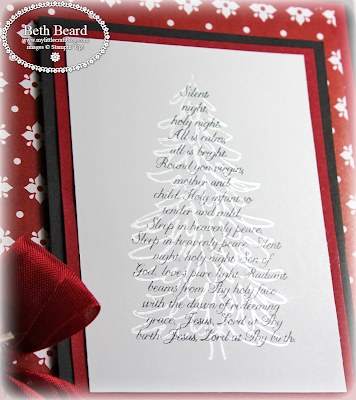 Beth Beard
images © Stampin' Up!
Silent
night,
holy night
All is calm,
all is bright
Round yon virgin,
mother and
child. Holy infant so
tender and mild,
Sleep in heavenly peace,
Sleep in heavenly peace. Silent
night, holy night Son of
God, love's pure light. Radiant
beams from Thy holy face
with the dawn of redeeming
grace, Jesus, Lord at Thy
birth. Jesus, Lord at Thy birth.